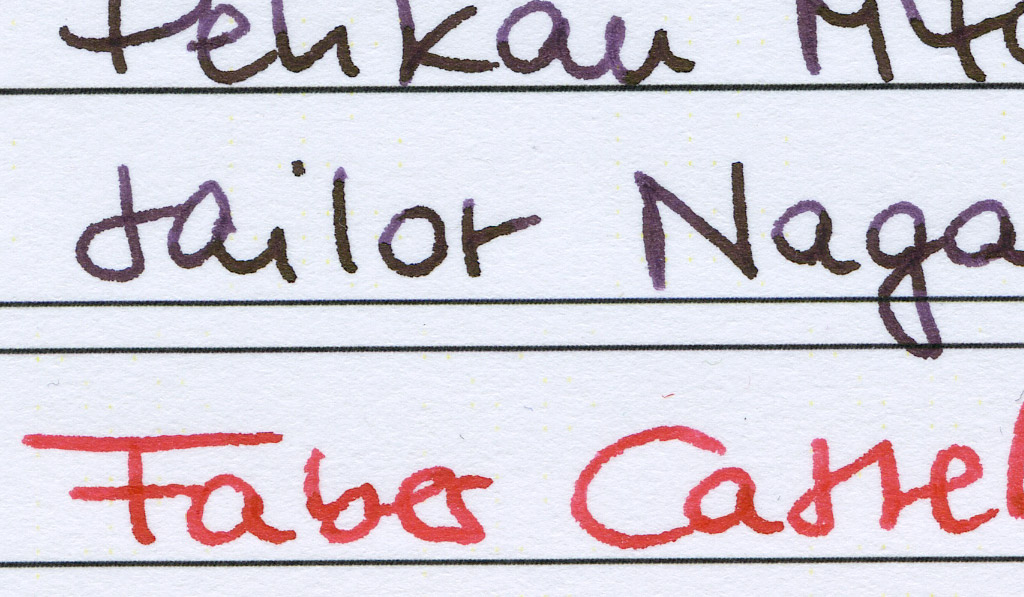 Pelikan M4
Sailor Naga
Faber Castel